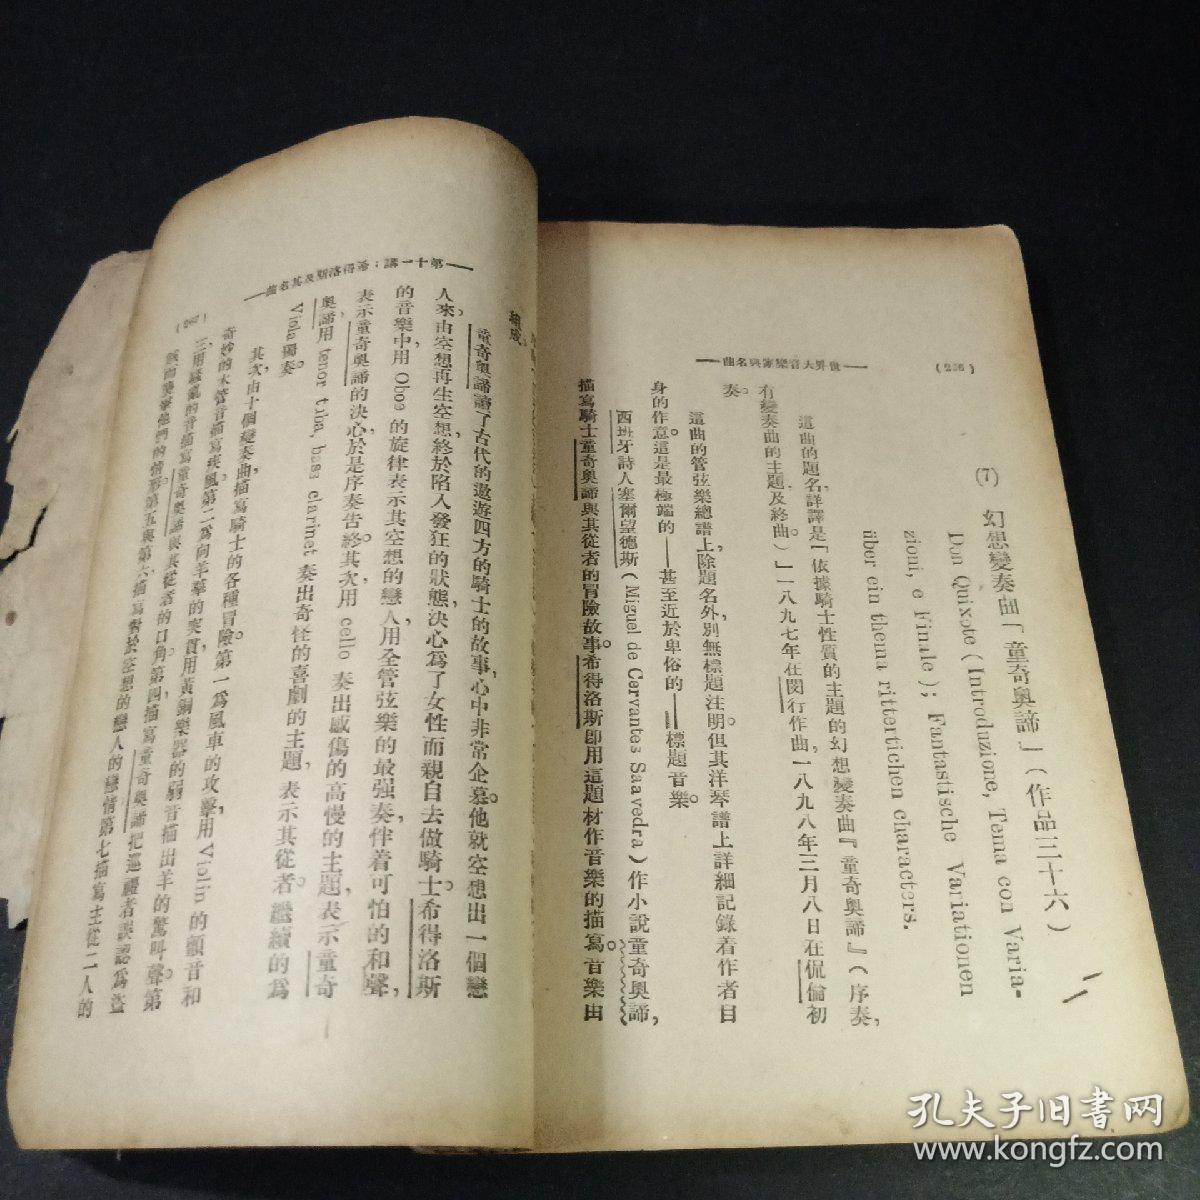 (256)
——世界大音樂家與名曲——
(7) 幻想變奏曲「童奇奧諦」(作品三十六)
Don Quixote (Introduzione, Tema con Varia-
zioni, e Finale); Fantastische Variationen
über ein thema rittertichen characters.
這曲的題名,詳譯是「依據騎士性質的主題的幻想變奏曲『童奇奧諦』(序奏,
有變奏曲的主題,及終曲。)」一八九七年在閔行作曲,一八九八年三月八日在侃倫初
奏。
這曲的管弦樂總譜上,除題名外,別無標題注明。但其洋琴譜上詳細記錄着作者目
身的作意。這是最極端的——甚至近於卑俗的——標題音樂。
西班牙詩人塞爾望德斯(Miguel de Cervantes Saavedra)作小說童奇奧諦,
描寫騎士童奇奧諦與其從者的冒險故事。希得洛斯即用這題材作音樂的描寫。音樂由
——第十一講:希得洛斯及其名曲——
(257)
細成。
童奇奧諦讀了古代的遨遊四方的騎士的故事,心中非常企慕。他就空想出一個戀
人來。由空想再生空想,終於陷入發狂的狀態,決心爲了女性而親自去做騎士。希得洛斯
的音樂中,用 Oboe 的旋律表示其空想的戀人,用全管弦樂的最强奏伴着可怕的和聲,
表示童奇奧諦的決心。於是序奏告終。其次,用 cello 奏出感傷的高慢的主題,表示童奇
奧諦;用 tenor tuba, bass clarinet 奏出奇怪的喜劇的主題,表示其從者。繼續的爲
Viola 獨奏。
其次由十個變奏曲描寫騎士的各種冒險。第一爲風車的攻擊,用 Violin 的顫音和
奇妙的木管音描寫疾風。第二爲向羊羣的突貫,用黃銅樂器的弱音描出羊的驚叫聲。第
三用騷亂的音描寫童奇奧諦與其從者的口角。第四描寫童奇奧諦把巡禮者誤認爲盜
賊而襲擊他們的情形。第五與第六描寫對於空想的戀人的戀情。第七描寫主從二人的
孔夫子旧书网
www.kongfz.com